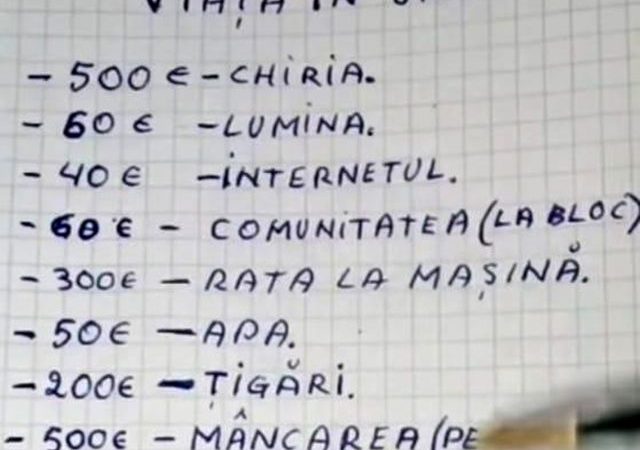 VIAȚA ÎN
- 500 € - CHIRIA.
- 60 € - LUMINA.
- 40 € - INTERNETUL.
- 60 € - COMUNITATEA (LA BLOC)
- 300€ - RATA LA MAȘINĂ.
- 50€ - APA.
- 200€ - ȚIGĂRI.
- 500€ - MÂNCAREA (PE